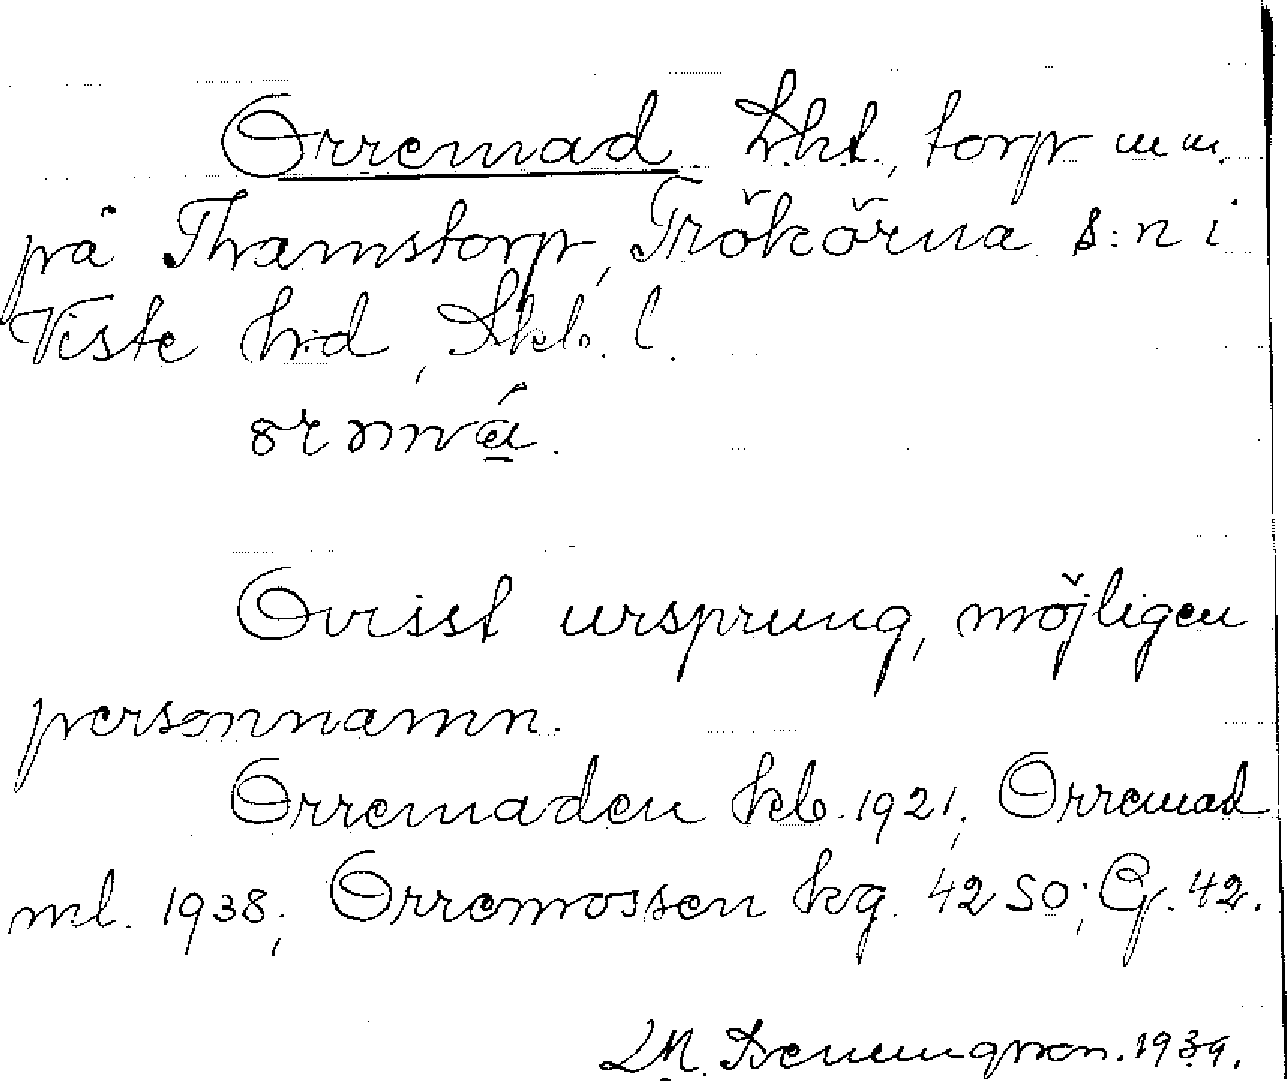 Orremad lht., torp m m.
på Thamstorp, Trökörna s:n i
Viste h:d, Skb. l.
Ovisst ursprung, möjligen
personnamn.
Orremaden kb. 1921; Orremad
ml. 1938; Orremossen kg. 42 SO; G. 42.
1939.